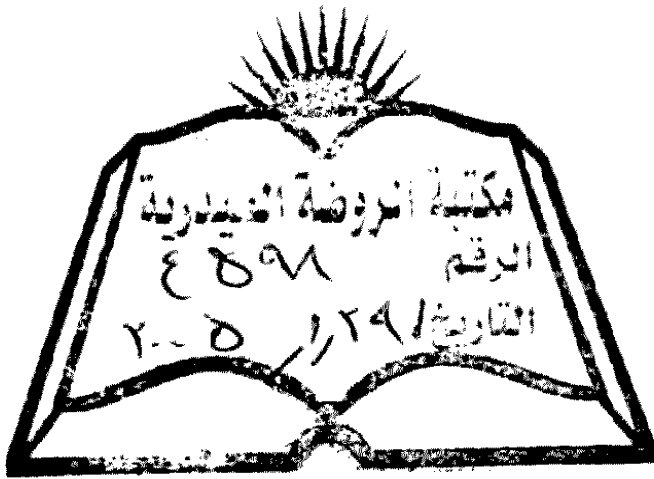 مكتبة الروضة الحيدرية
الرقم ٤٥٩٨
التاريخ / ٢٩ / ١ / ٢٠٠٥